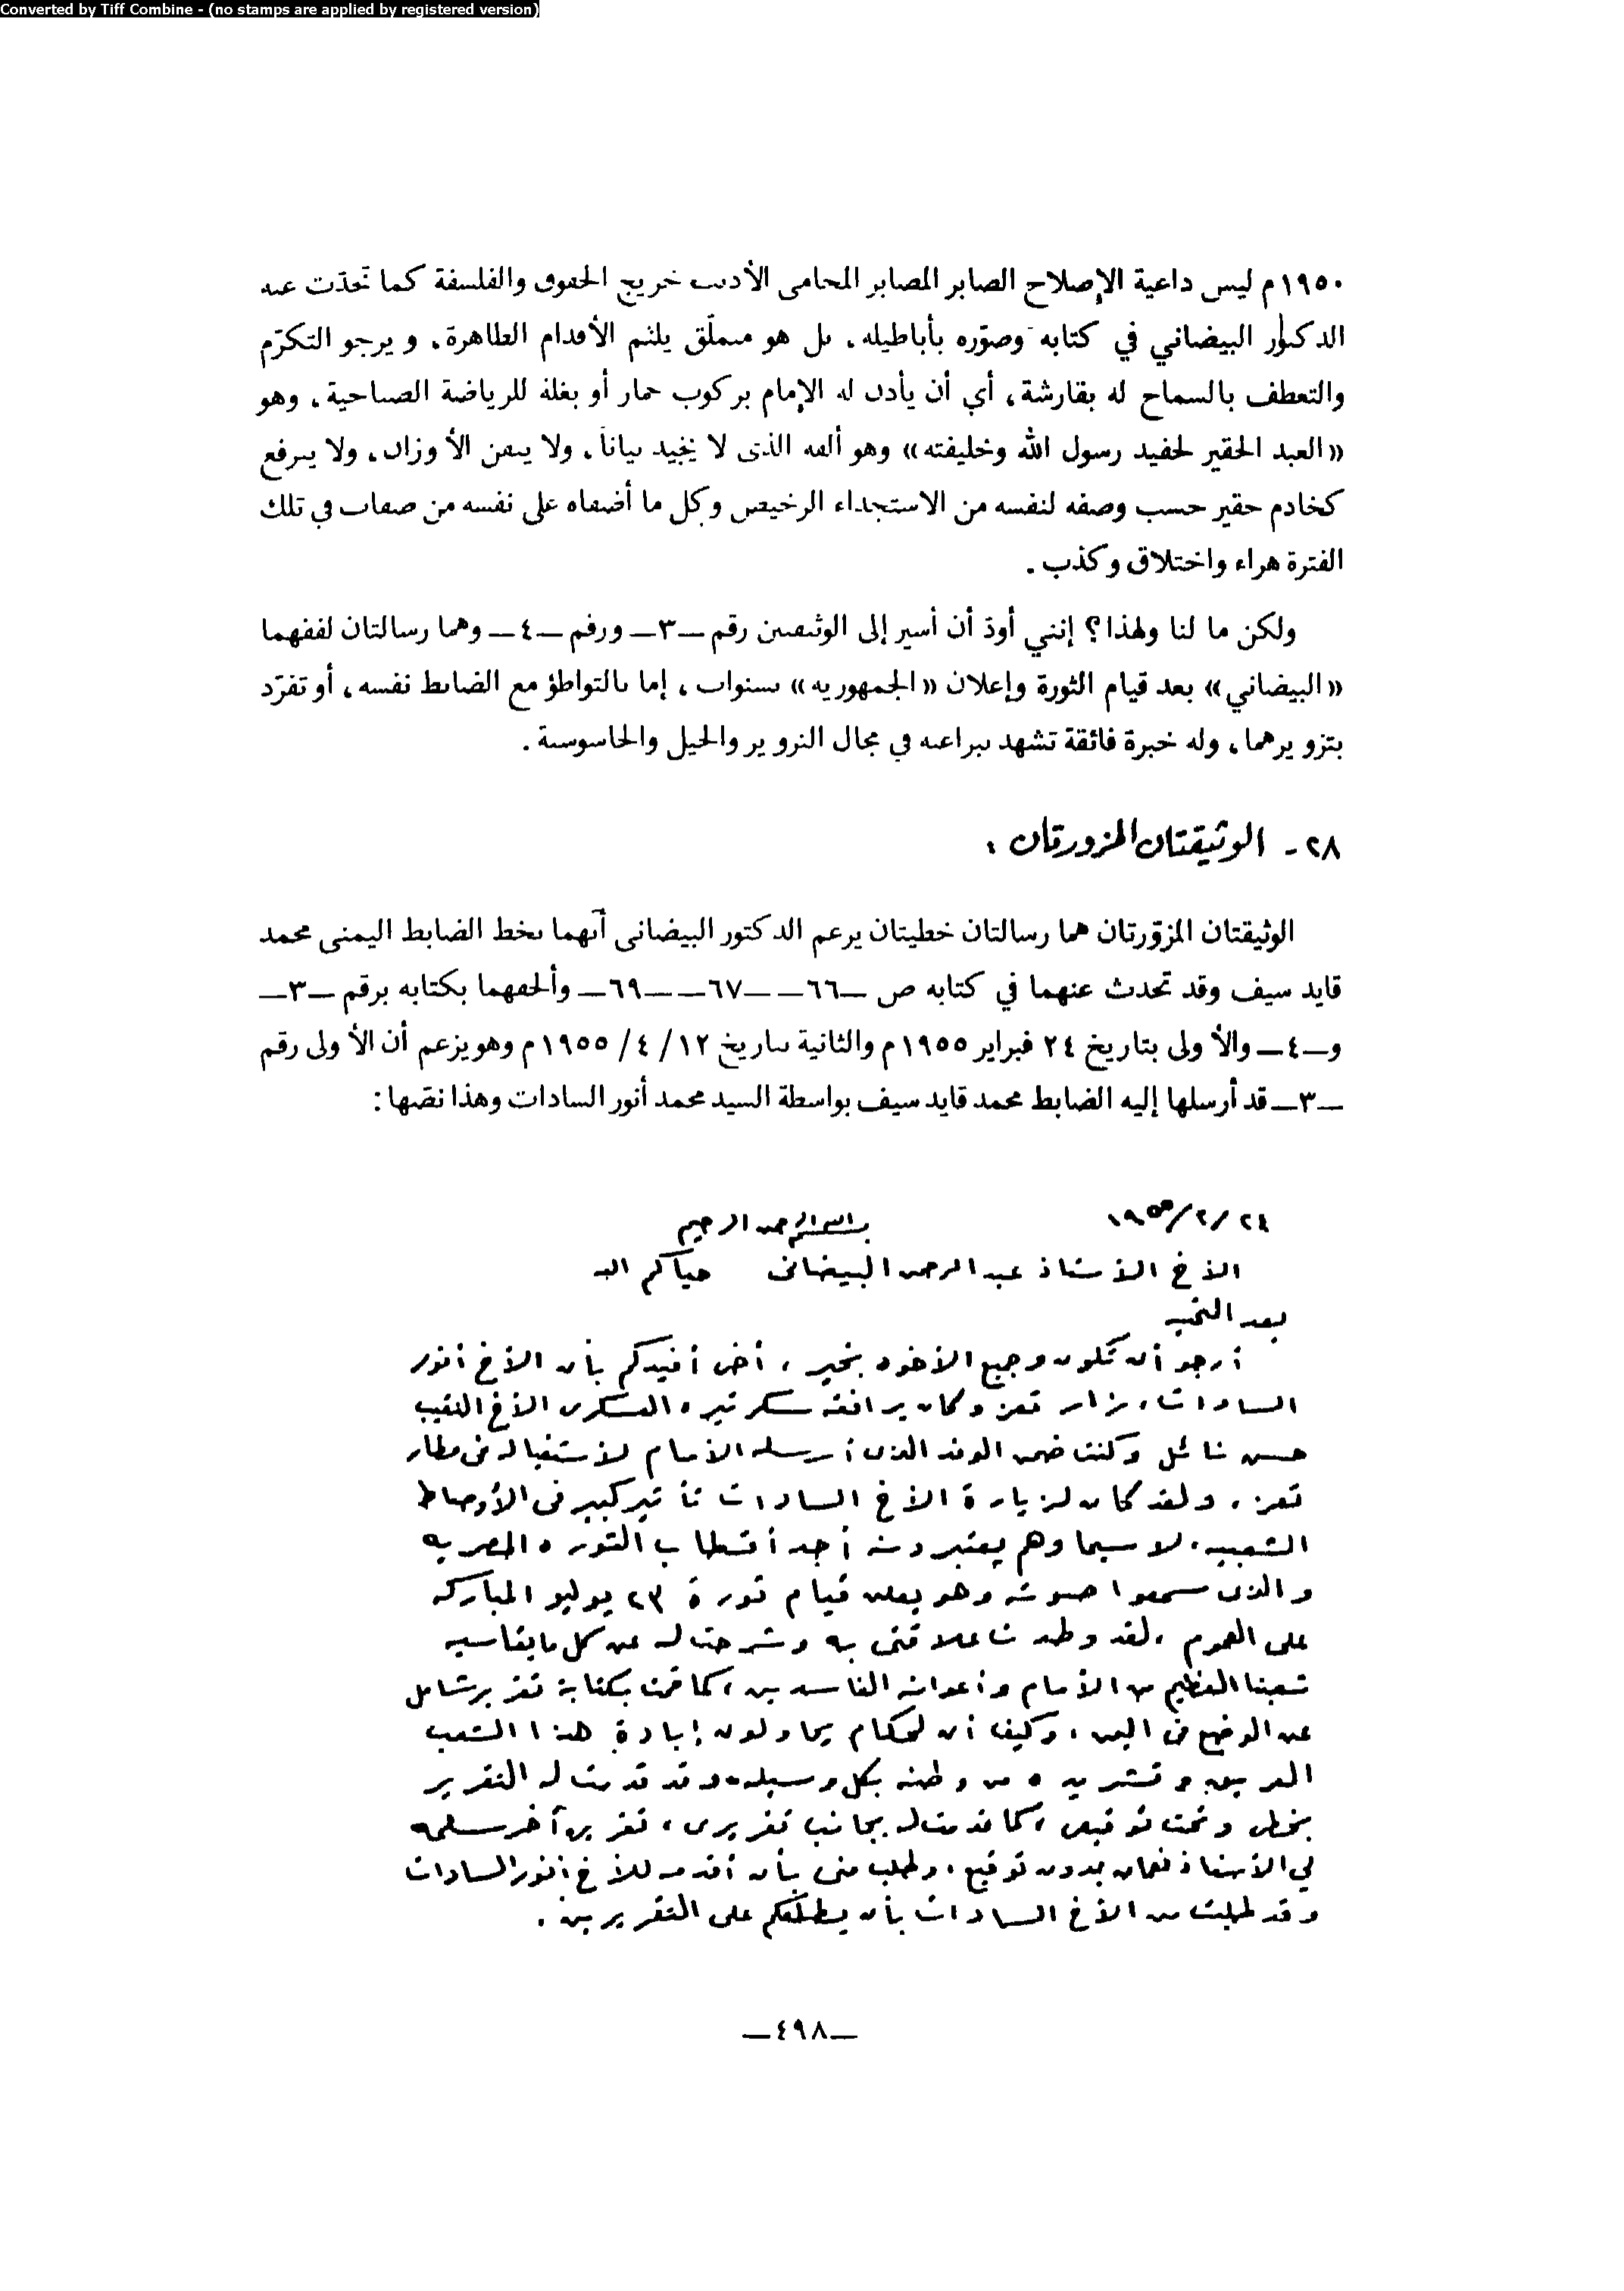 Converted by Tiff Combine - (no stamps are applied by registered version)
١٩٥٠م ليس داعية الإصلاح الصابر المصابر المحامي الأديب خريج الحقوق والفلسفة كما تحدّث عنه
الدكتور البيضاني في كتابه وصوّره بأباطيله، بل هو متملّق يلثم الأقدام الطاهرة، ويرجو التكرّم
والتعطف بالسماح له بقارشة، أي أن يأذن له الإمام بركوب حمار أو بغلة للرياضة الصباحية، وهو
«العبد الحقير لحفيد رسول الله وخليفته» وهو ألفه الذي لا يجيد بياناً، ولا يتقن الأوزان، ولا يترفع
كخادم حقير حسب وصفه لنفسه من الاستجداء الرخيص وكل ما أضفاه على نفسه من صفات في تلك
الفترة هراء واختلاق وكذب.
ولكن ما لنا ولهذا؟ إنني أودّ أن أشير إلى الوثيقتين رقم —٣— ورقم —٤— وهما رسالتان لفقهما
«البيضاني» بعد قيام الثورة وإعلان «الجمهورية» بسنوات، إما بالتواطؤ مع الضابط نفسه، أو تفرّد
بتزويرهما، وله خبرة فائقة تشهد ببراعته في مجال التزوير والحيل والجاسوسية.
٢٨ - الوثيقتان المزورتان :
الوثيقتان المزوّرتان هما رسالتان خطيتان يزعم الدكتور البيضاني أنهما بخط الضابط اليمني محمد
قايد سيف وقد تحدث عنهما في كتابه ص —٦٦— —٦٧— —٦٩— وألحقهما بكتابه برقم —٣—
و—٤— والأولى بتاريخ ٢٤ فبراير ١٩٥٥م والثانية بتاريخ ١٢/ ٤/ ١٩٥٥م وهو يزعم أن الأولى رقم
—٣— قد أرسلها إليه الضابط محمد قايد سيف بواسطة السيد محمد أنور السادات وهذا نصّها:
٢٤/٢/١٩٥٥
بسم الله الرحمن الرحيم
الأخ الأستاذ عبد الرحمن البيضاني حياكم الله
بعد التحية
أرجو أن تكون وجميع الأخوه بخير، أخي أفيدكم بأن الأخ أنور
السادات، زار تعز وكان يرافقه سكرتيره العسكري الأخ النقيب
حسن نائل وكنت ضمن الوفد الذي أرسله الأمام لأستقباله في مطار
تعز، ولقد كان لزيارة الأخ السادات تأثير كبير في الأوساط
الشعبيه، لا سيما وهم يعتبرونه أحد أقطاب الثوره المصريه
والذي سمعوا صوته وهو يعلن قيام ثورة ٢٣ يوليو المباركه
على العموم، لقد وطدت علاقتي به وشرحت له عن كل ما يقاسيه
شعبنا العظيم من الأمام وأعوانه الفاسدين، كما قمت بكتابة تقرير شامل
عن الوضع في اليمن، وكيف أن الحكام يحاولون إبادة هذا الشعب
العريق وتشريده من وطنه بكل وسيله، وقد قدمت له التقرير
بخطي وتحت توقيعي، كما قدمت له بجانب تقريري، تقريرا آخر سلمه
لي الأستاذ نعمان بدون توقيع، وطلب مني بأن أقدمه للأخ أنور السادات
وقد طلبت من الأخ السادات بأن يطلعكم على التقريرين.
—٤٩٨—